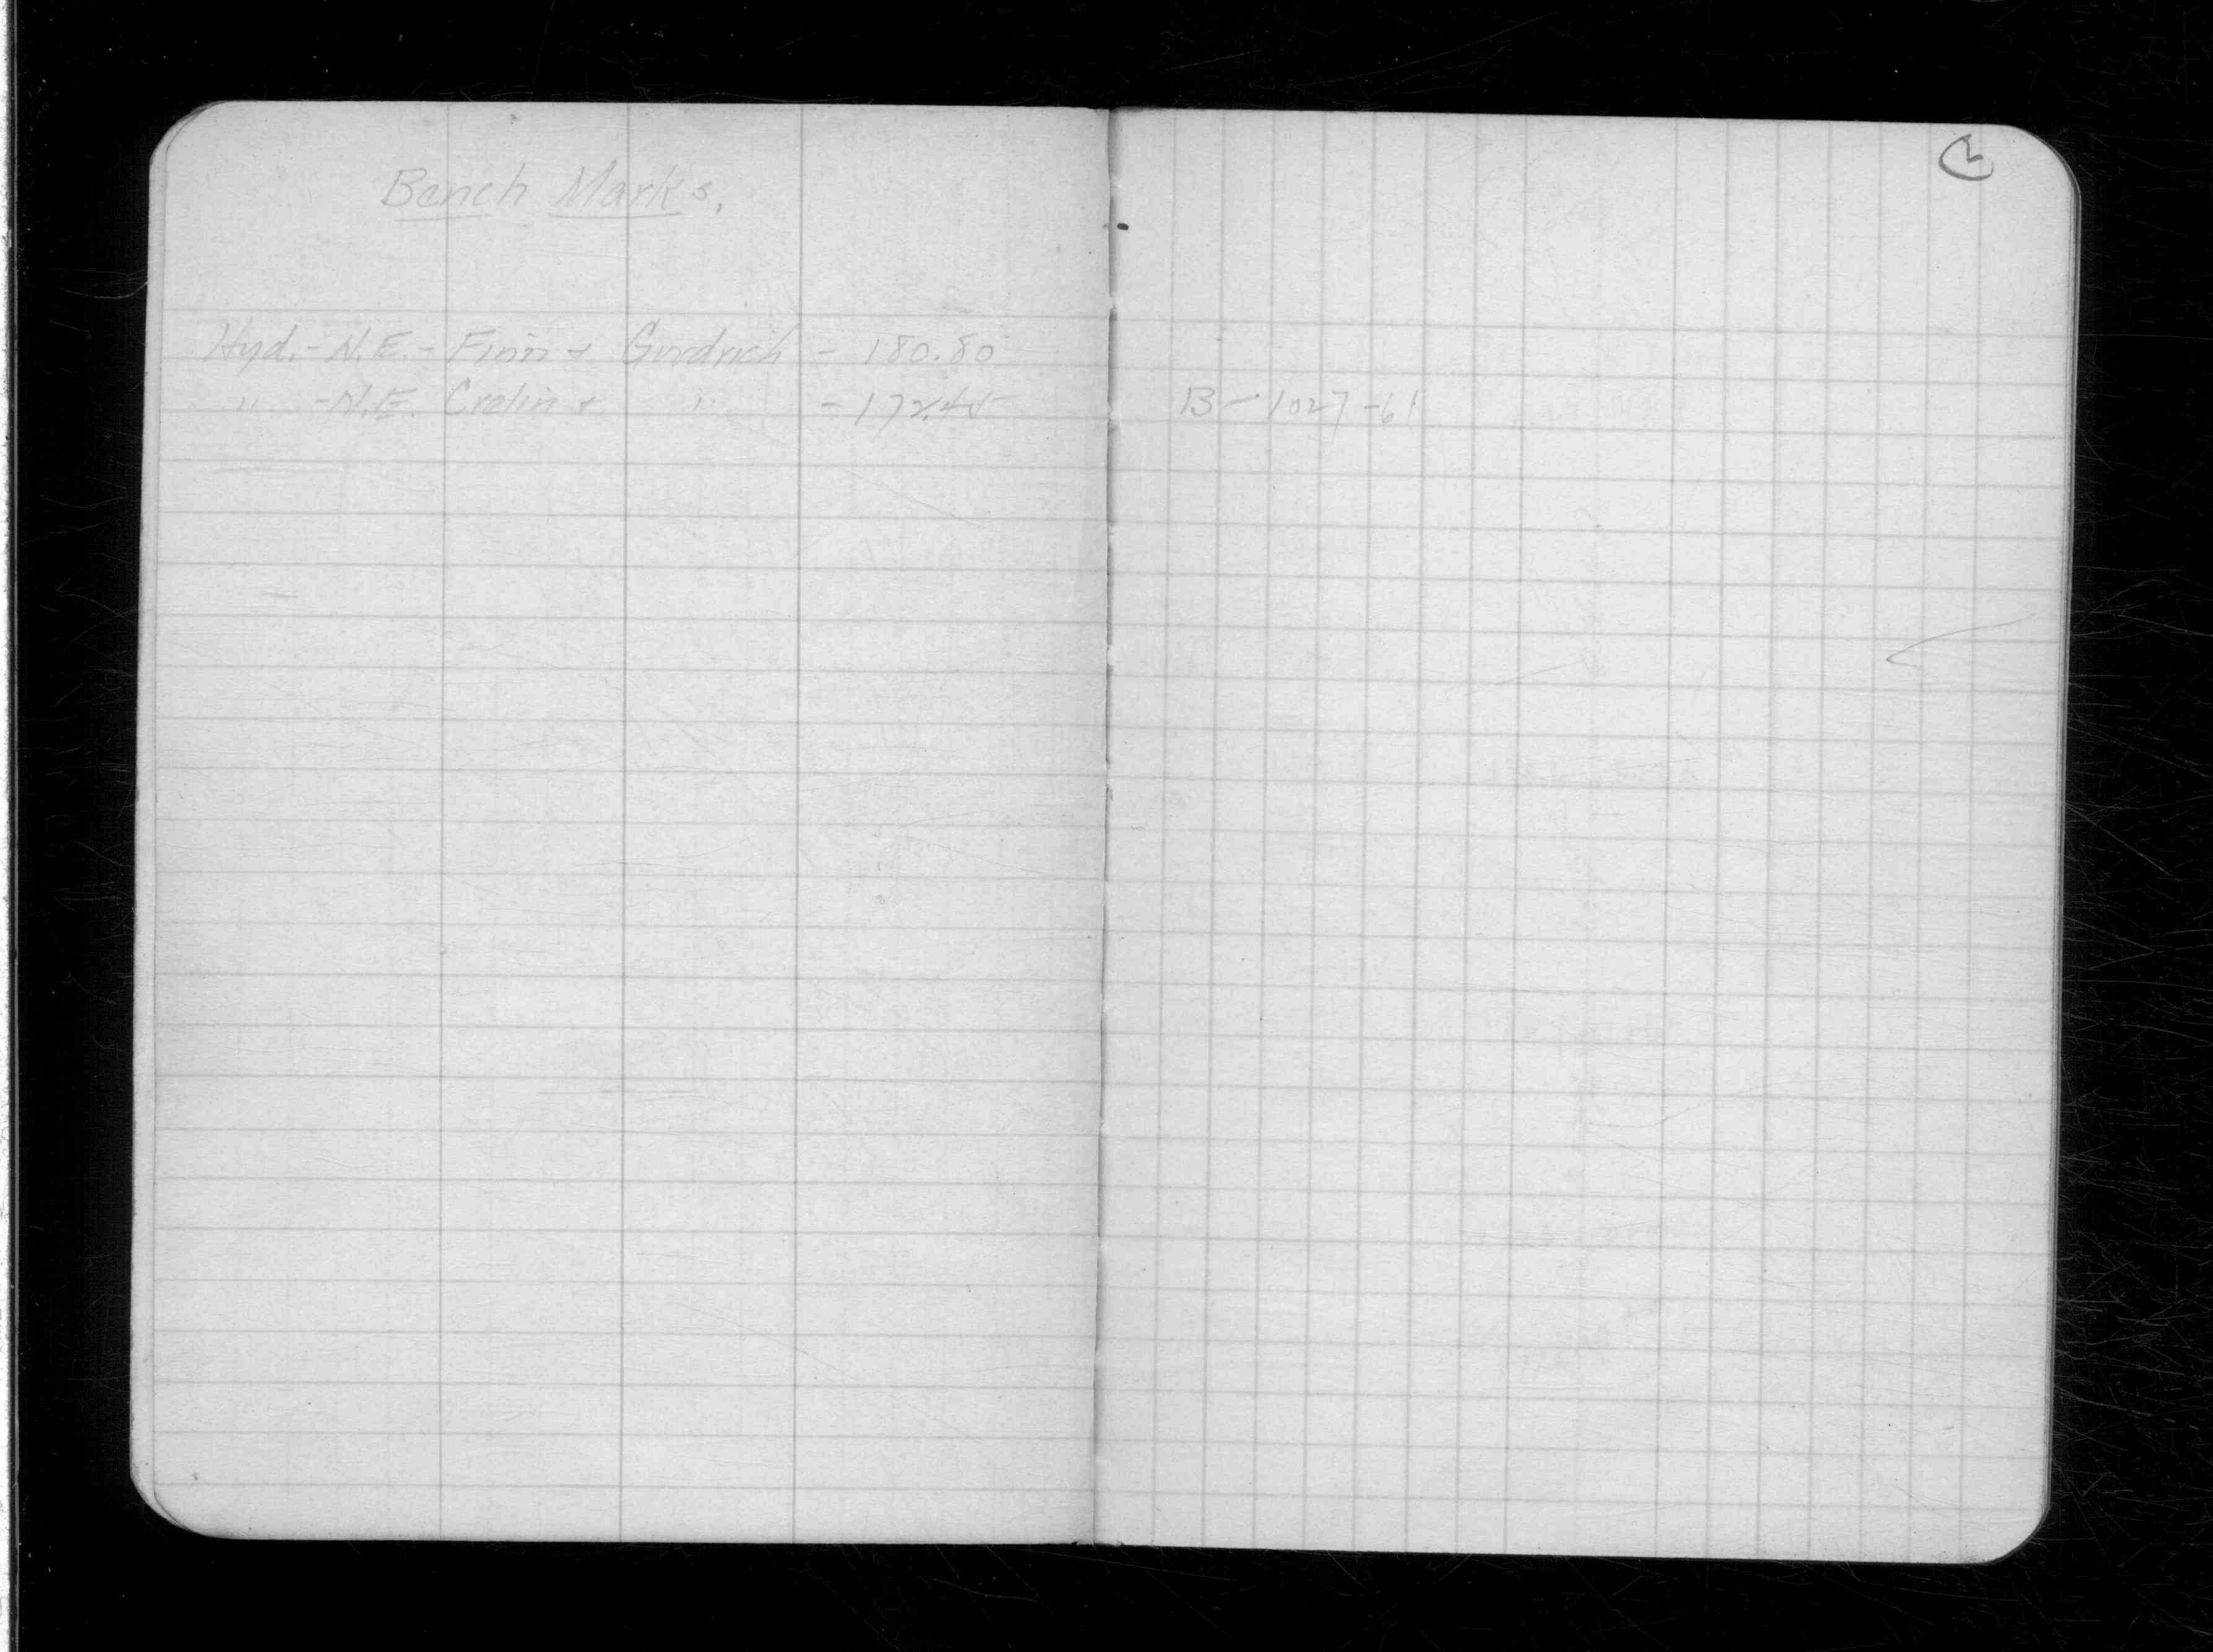 Bench Marks.
Hyd.- N.E.- Finn + Goodrich - 180.80
" - N.E. Crolin + " - 172.45
2
B - 1027-61